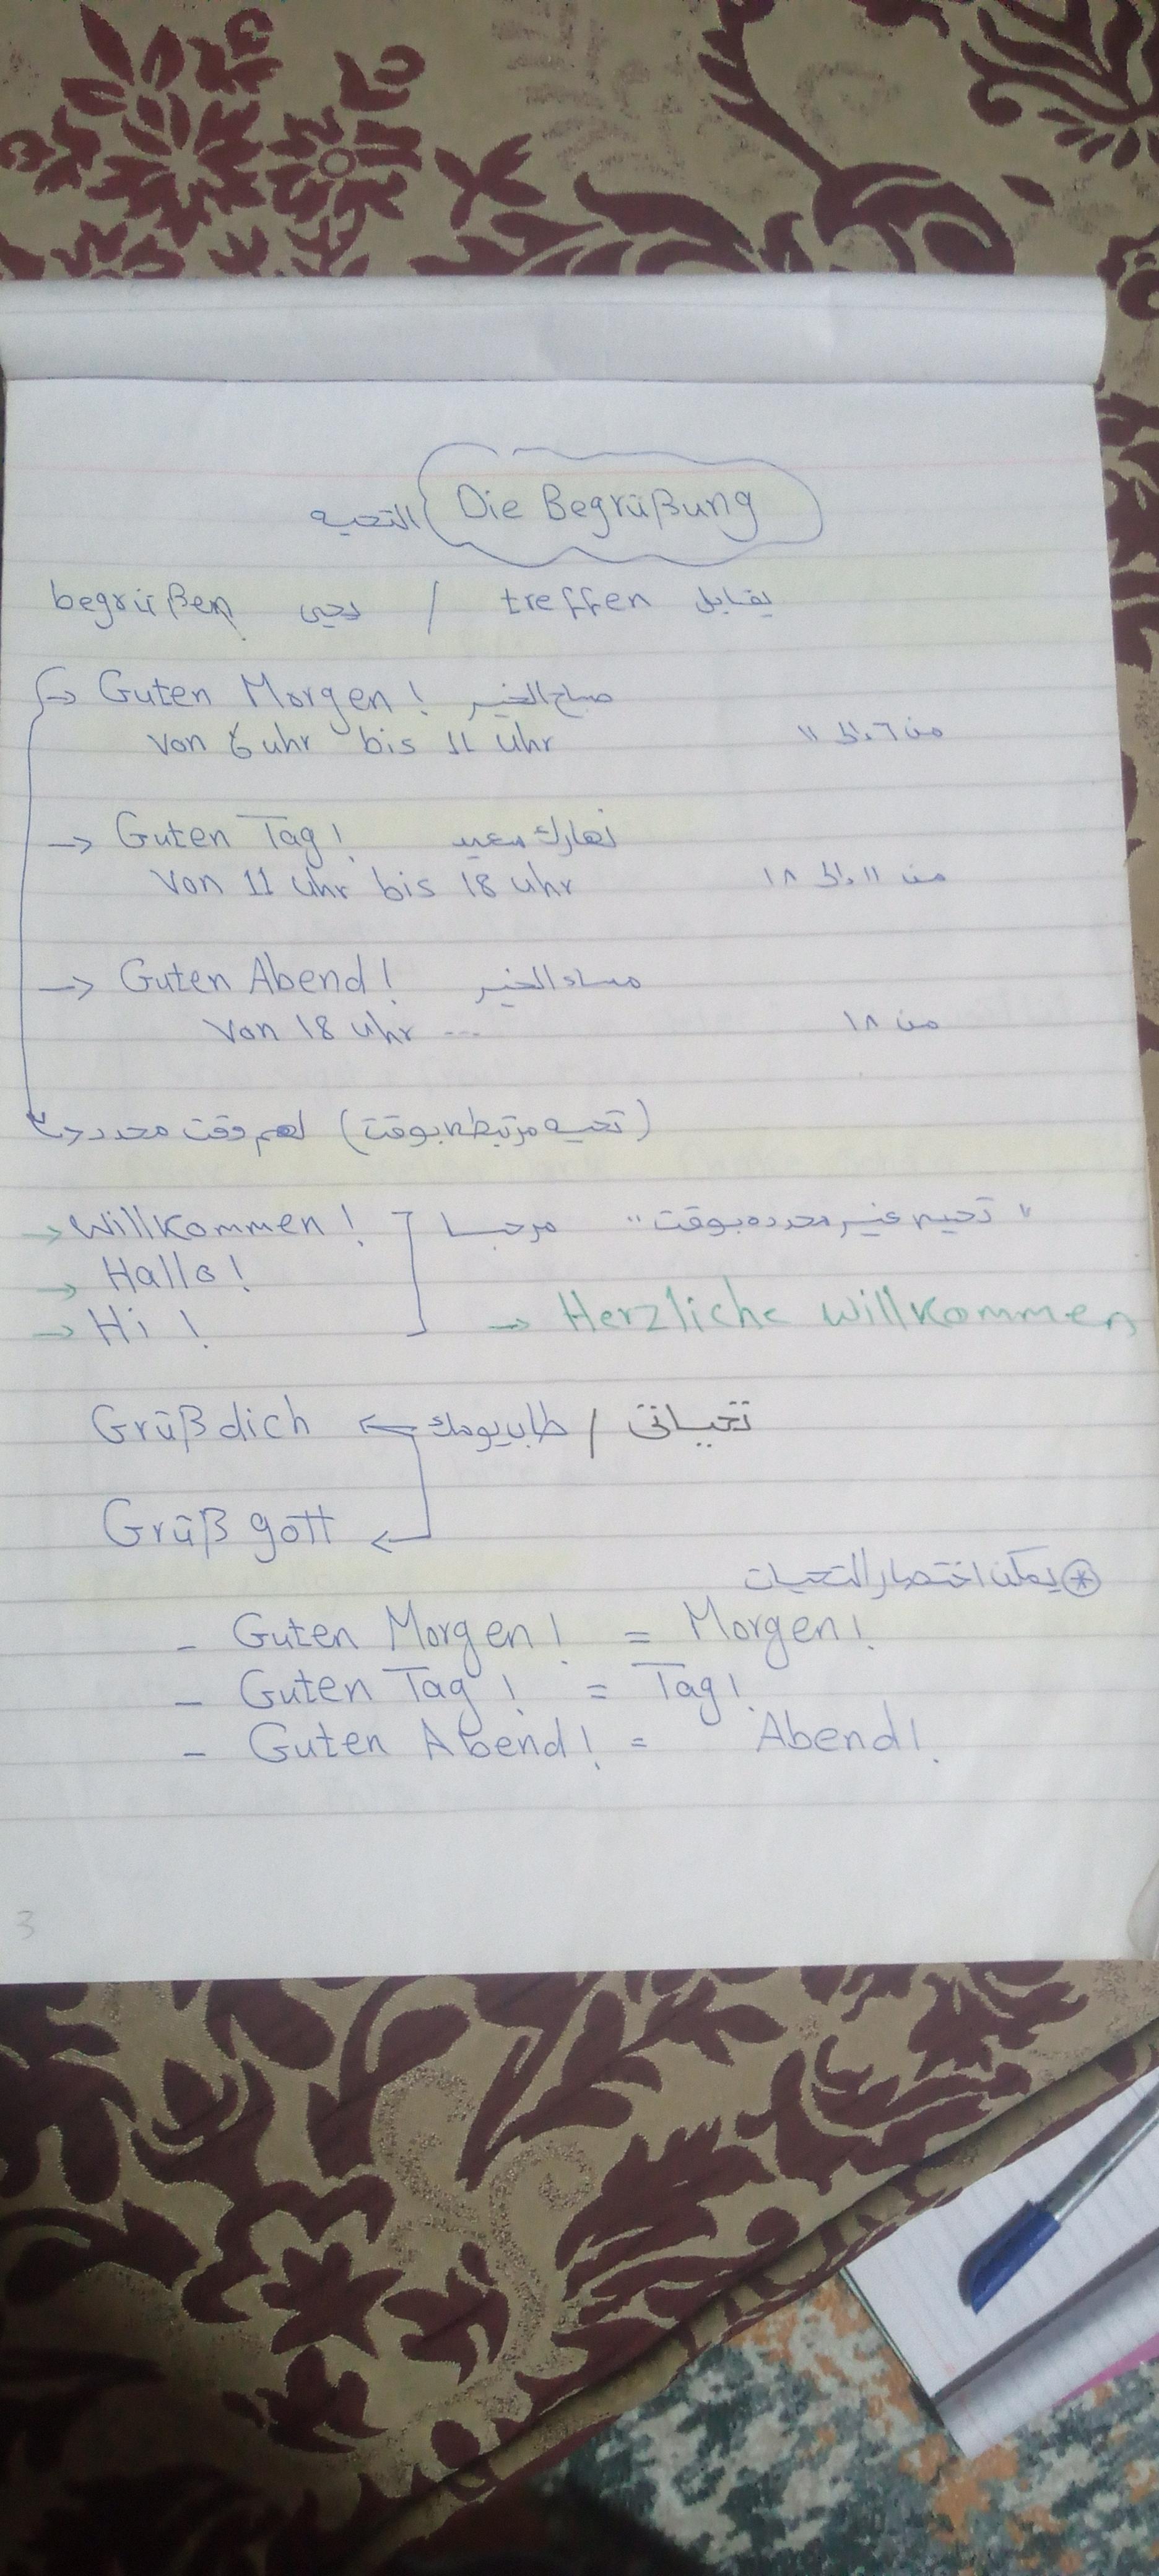 Die Begrüßung التحيه
begrüßen يحيى / treffen يقابل
→ Guten Morgen! صباح الخير
von 6 uhr bis 11 Uhr من ٦ الى ١١
→ Guten Tag! نهارك سعيد
von 11 uhr bis 18 uhr من ١١ الى ١٨
→ Guten Abend! مساء الخير
von 18 uhr --- من ١٨
لهم وقت محدد (تحيه مرتبطه بوقت)
→ Willkommen! مرحبا "تحيه غير محدده بوقت"
→ Hallo!
→ Hi! → Herzliche willkommen
Grüß dich ← طاب يومك / تحياتى
Grüß gott ←
⊛ يمكن اختصار التحيات
- Guten Morgen! = Morgen!
- Guten Tag! = Tag!
- Guten Abend! = Abend!
3